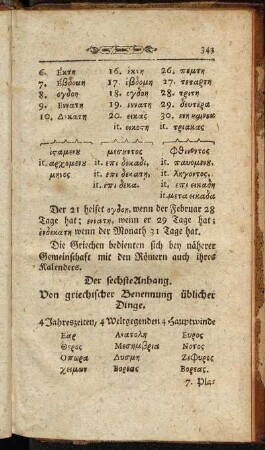 343
6. Εκτη 16. έκτη 26. πεμπτη
7. Εβδομη 17. έβδομη 27. τεταρτη
8. ογδοη 18. ογδοη 28. τριτη
9. Εννατη 19. εννατη 29. δευτέρα
10. Δεκατη 20. εικας 30.
it. εικοστη it. τριακας
ισταμενου μεσουντος Φθινοντος
it. αρχομενου it. επι δεκαδι, it. παυομενου.
μηνος it. επι δεκατη, it. ληγοντος.
it. επι δεκα. it. επι εικαδι
it. μετα εικαδα
Der 21 heiset ογδοη, wenn der Februar 28
Tage hat; εννατη, wenn er 29 Tage hat;
ένδεκατη wenn der Monath 31 Tage hat.
Die Griechen bedienten sich bey näherer
Gemeinschaft mit den Römern auch ihres
Kalenders.
Der sechste Anhang.
Von griechischer Benennung üblicher
Dinge.
4 Jahreszeiten, 4 Weltgegenden 4 Hauptwinde
Εαρ Ανατολη Ευρος
Θερος Μεσημβρια Νοτος
Οπωρα Δυσμη Ζεφυρος
χειμων Βορεας Βορεας.
7. Pla=